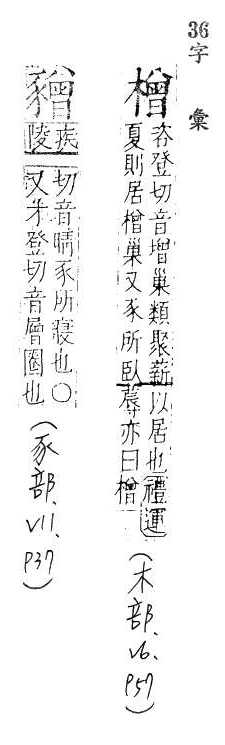 36字 彙
橧 咨登切音增巢類聚薪以居也禮運
夏則居橧巢又豕所臥蓐亦曰橧
(木部, v6. p57)
䝙 疾
陵
切音情豕所寢也〇
又才登切音層圈也
(豕部, v11. p37)